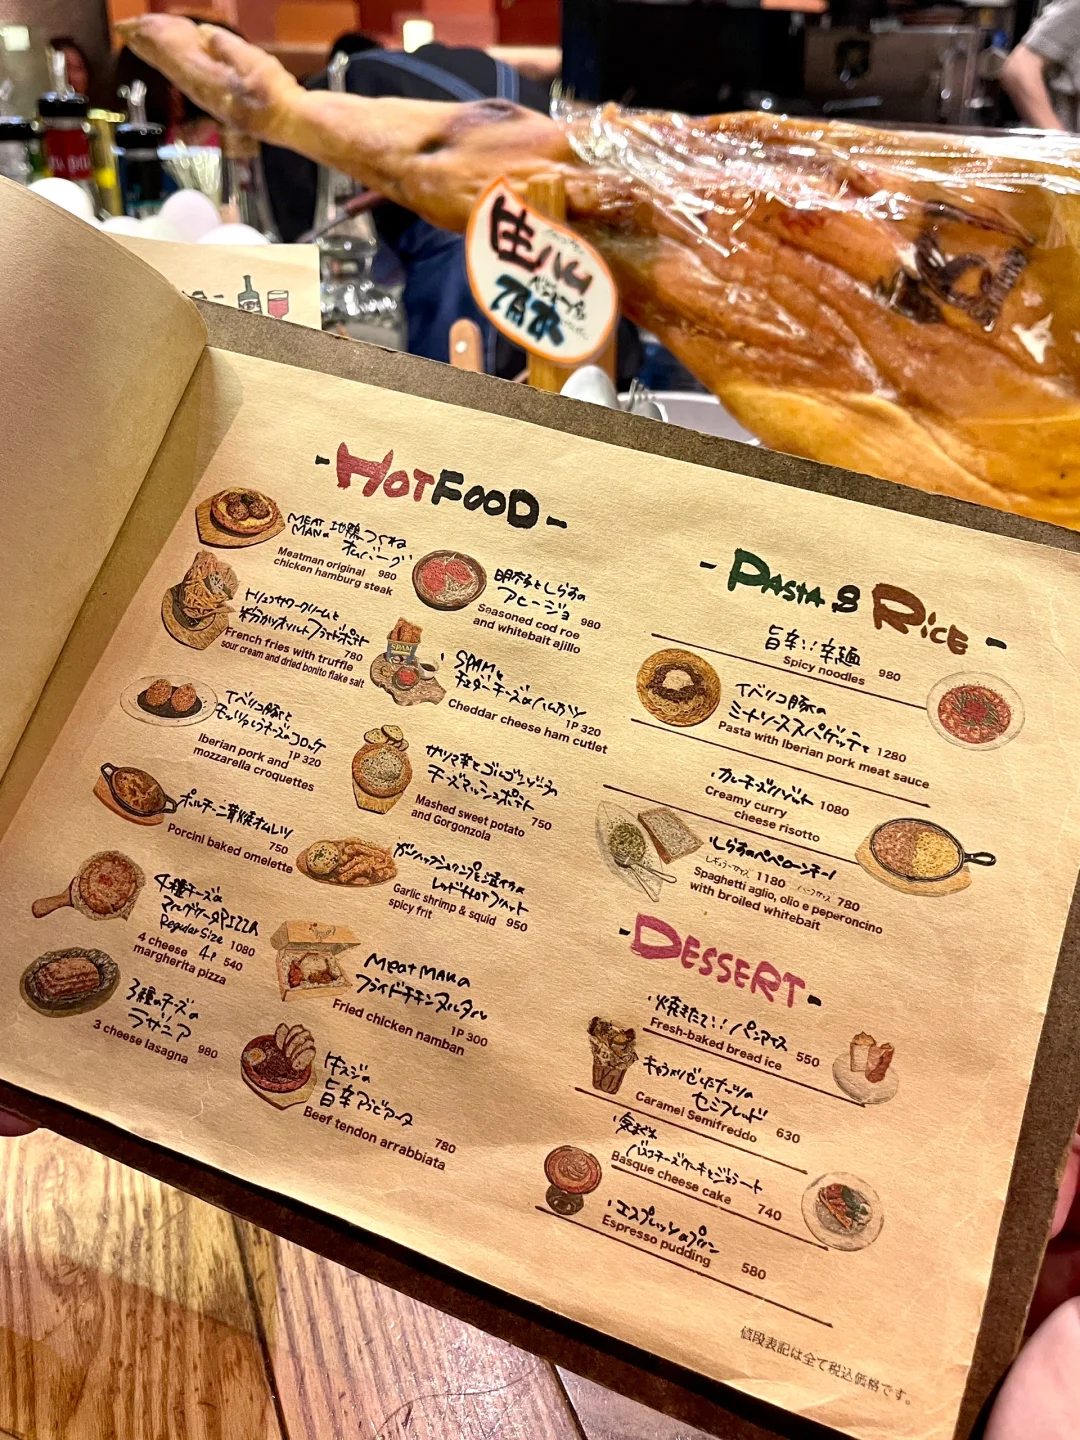 生ハム
-HOTFOOD-
MEAT MANの 地鶏つくね
Meatman original 980
chicken hamburg steak
明太子としらすの
アヒージョ
Seasoned cod roe 980
and whitebait ajillo
トリュフサワークリームと
粉がつおソルトフライドポテト
French fries with truffle 780
sour cream and dried bonito flake salt
SPAMと
チェダーチーズのハムカツ
1P 320
Cheddar cheese ham cutlet
イベリコ豚と
モッツァレラチーズのコロッケ
1P 320
Iberian pork and
mozzarella croquettes
サツマ芋とゴルゴンゾーラの
チーズマッシュポテト
Mashed sweet potato 750
and Gorgonzola
ポルチーニ茸焼オムレツ
750
Porcini baked omelette
ガーリックシュリンプと
Garlic shrimp & squid 950
spicy frit
4種チーズの
マルゲリータPIZZA
Regular Size 1080
4 cheese 4P 540
margherita pizza
Meat MANの
フライドチキンタルタル
1P 300
Fried chicken namban
3種のチーズの
ラザニア
980
3 cheese lasagna
牛スジの
旨辛アラビアータ
780
Beef tendon arrabbiata
-PASTA & RICE-
旨辛!!辛麺
Spicy noodles 980
イベリコ豚の
ミートソーススパゲッティ 1280
Pasta with Iberian pork meat sauce
カレーチーズリゾット 1080
Creamy curry
cheese risotto
しらすのペペロンチーノ
レギュラーサイズ 1180 ハーフサイズ 780
Spaghetti aglio, olio e peperoncino
with broiled whitebait
-DESSERT-
焼きたて!!パンアイス 550
Fresh-baked bread ice
キャラメリゼしたナッツの
セミフレッド
630
Caramel Semifreddo
気まぐれ
バスクチーズケーキとジェラート
740
Basque cheese cake
エスプレッソのプリン
580
Espresso pudding
値段表記は全て税込価格です。
SPAM